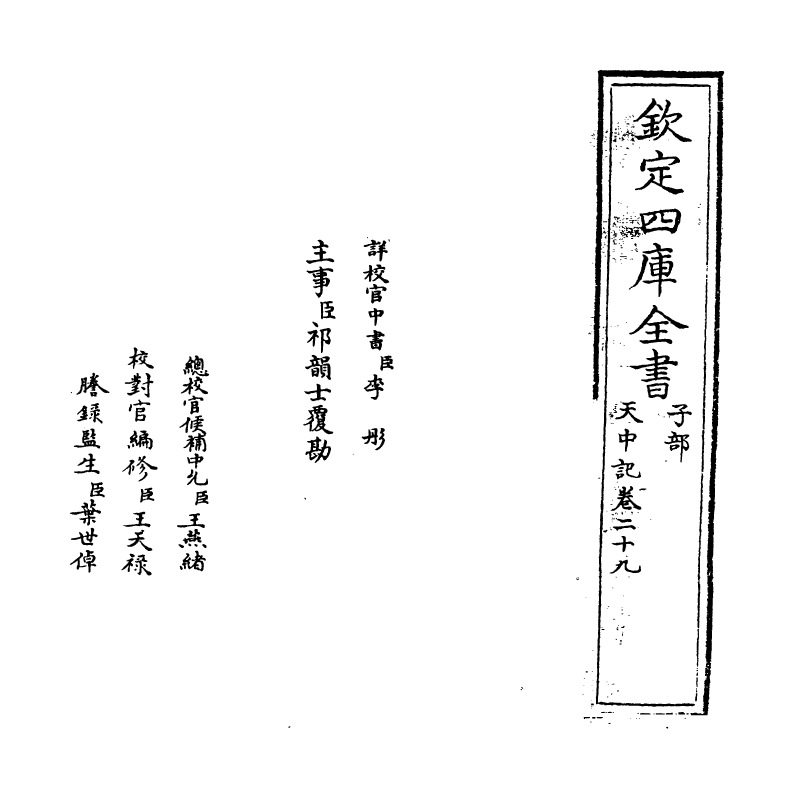 欽定四庫全書
子部
天中記卷二十九
詳校官中書臣李彤
主事臣祁韻士覆勘
總校官候補中允臣王燕緒
校對官編修臣王天祿
謄錄監生臣葉世倬